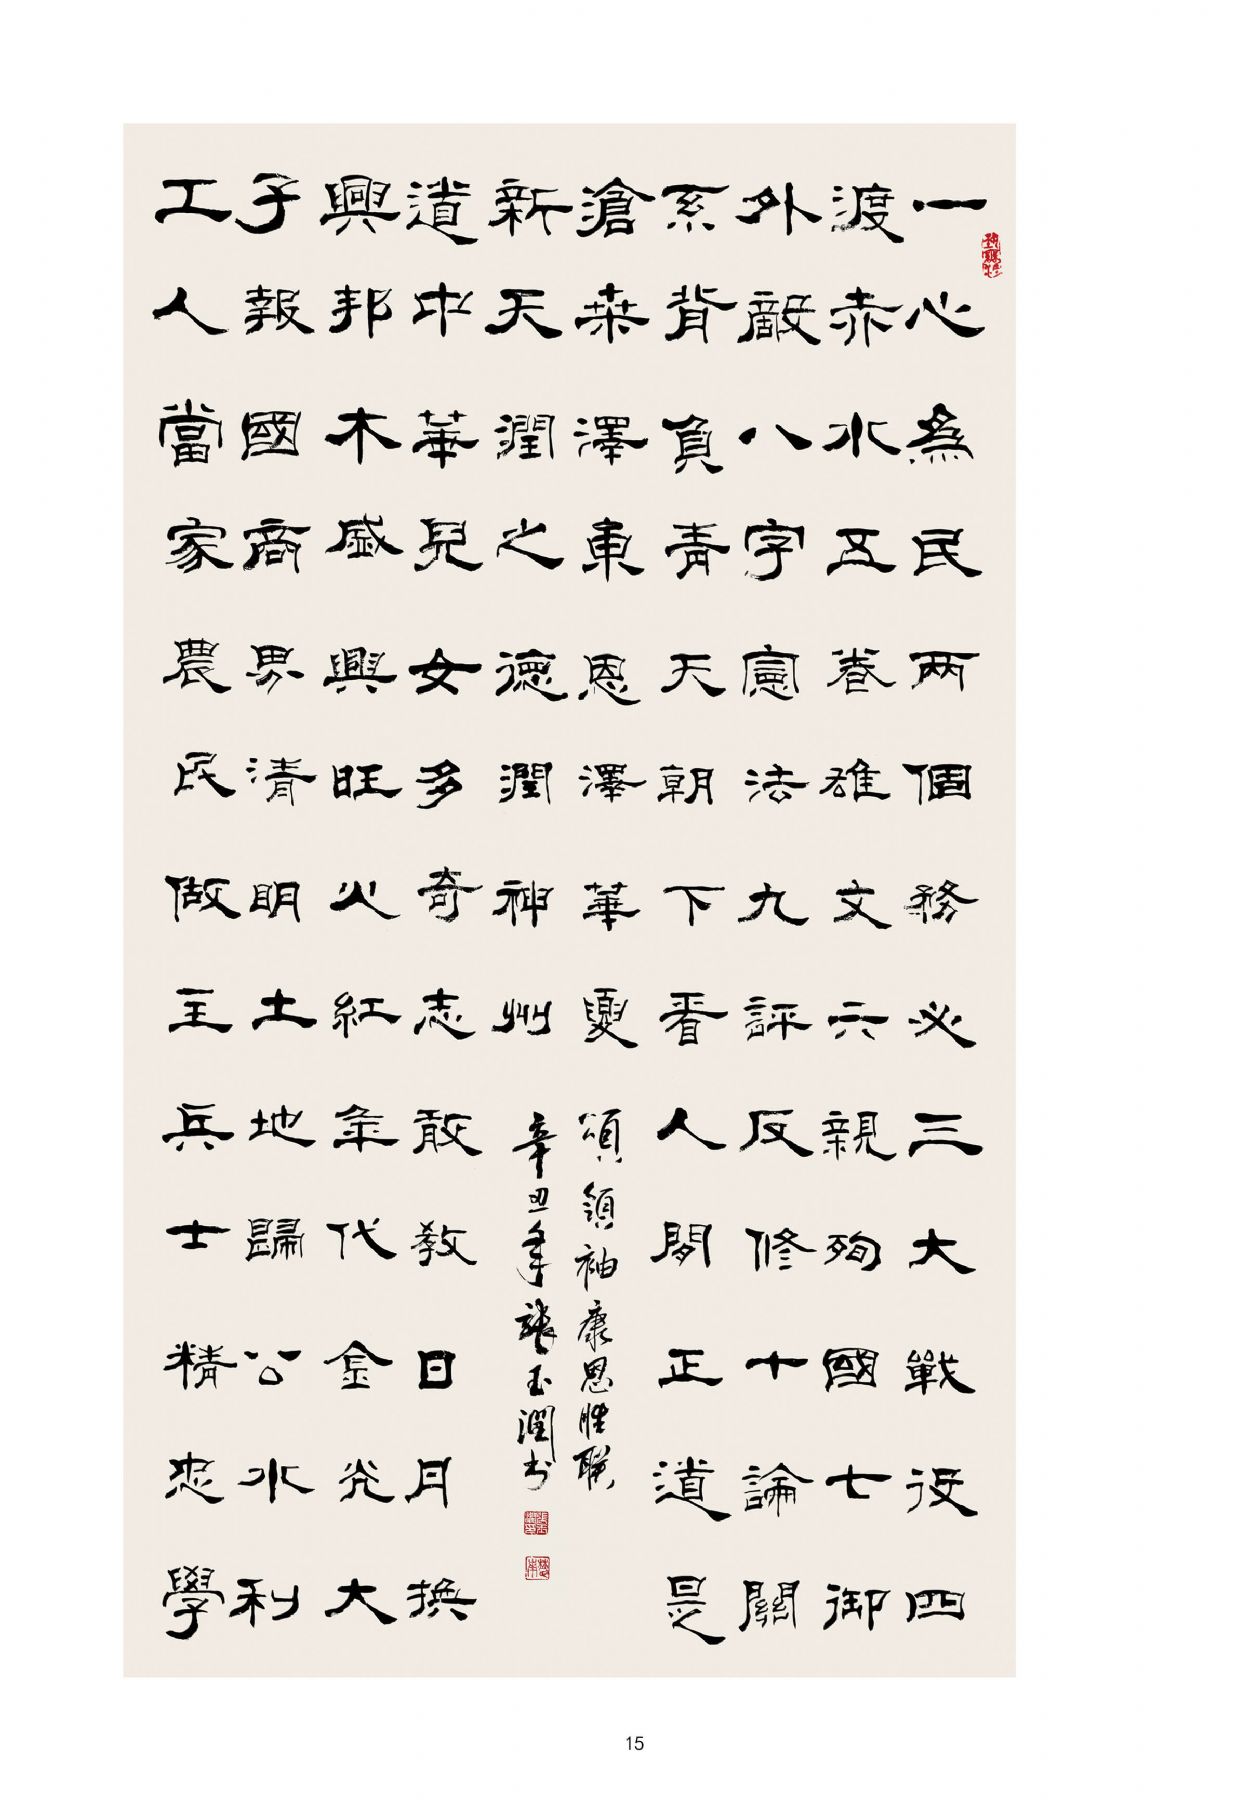 一心為民两個務必三大戰役四
渡赤水五卷雄文六親殉國七御
外敵八字憲法九評反修十論關
系背負青天朝下看人間正道是
滄桑澤東恩澤華夏
工人當家農民做主兵士精忠學
子報國商界清明土地歸公水利
興邦木盛興旺火紅年代金光大
道中華兒女多奇志敢教日月換
新天潤之德潤神州
頌領袖康恩勝聯
辛丑年張玉潤书
15